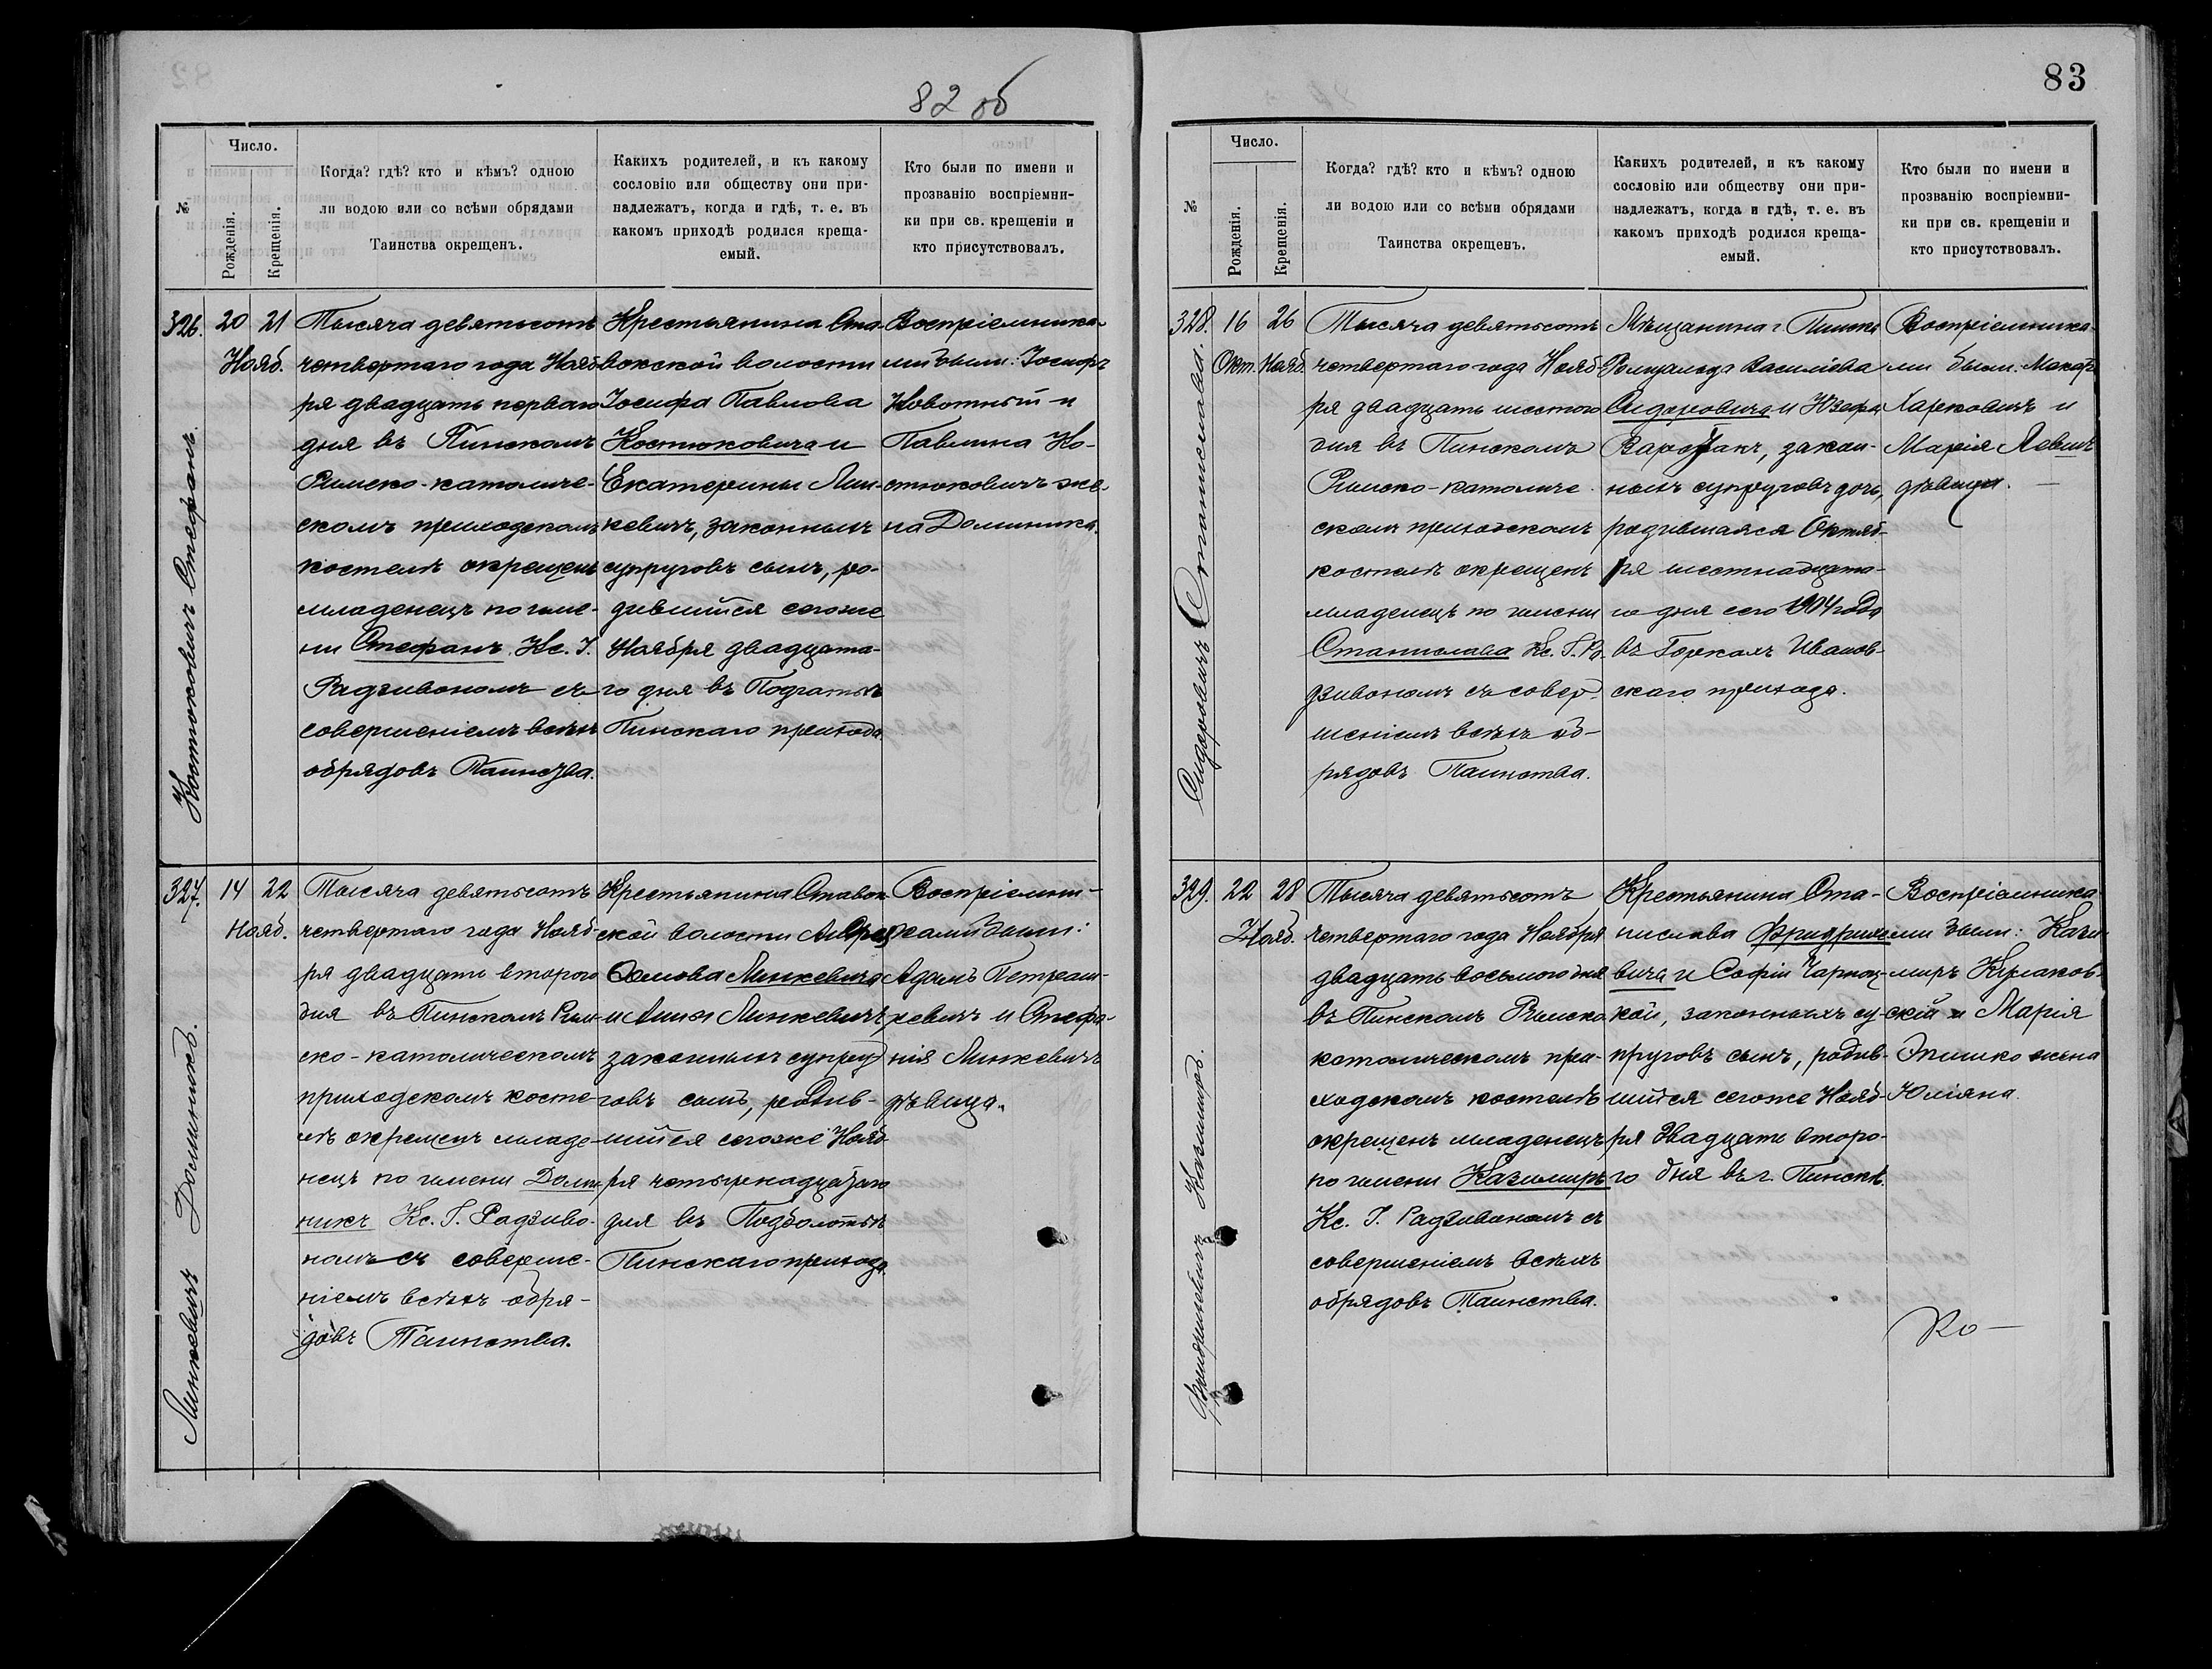 82 об
Число.
№
Рожденія.
Крещенія.
Когда? гдѣ? кто и кѣмъ? одною
ли водою или со всѣми обрядами
Таинства окрещенъ.
Какихъ родителей, и къ какому
сословію или обществу они при-
надлежатъ, когда и гдѣ, т. е. въ
какомъ приходѣ родился креща-
емый.
Кто были по имени и
прозванію воспріемни-
ки при св. крещеніи и
кто присутствовалъ.
326.
Костюковичъ Стефанъ.
20 21
Нояб.
Тысяча девятьсотъ
четвертаго года Нояб-
ря двадцать перваго
дня въ Пинскомъ
Римско-католиче-
скомъ приходскомъ
костелѣ окрещенъ
младенецъ по име-
ни Стефанъ. Кс. І.
Радзивономъ съ
совершеніемъ всѣхъ
обрядовъ Таинства.
Крестьянина Ста-
вокской волости
Іосифа Павлова
Костюковича и
Екатерины Лин-
кевичъ, законныхъ
супруговъ сынъ, ро-
дившійся сегоже
Ноября двадцата-
го дня въ
Пинскаго прихода
Воспріемника-
ми были: Іосифъ
Новотный и
Павлина Ко-
стюковичъ же-
на Доминика.
327.
Линкевичъ Доминикъ.
14 22
Нояб.
Тысяча девятьсотъ
четвертаго года Нояб-
ря двадцать второго
дня въ Пинскомъ Рим-
ско-католическомъ
приходскомъ косте-
лѣ окрещенъ младе-
нецъ по имени Доми-
никъ Кс. І. Радзиво-
номъ съ соверше-
ніемъ всѣхъ обря-
довъ Таинства.
Крестьянина Ставок-
ской волости
Линкевича
и Анны Линкевичъ
законныхъ супру-
говъ сынъ, родив-
шійся сегоже Нояб-
ря четырнадцатаго
дня въ Подболотьѣ
Пинскаго прихода.
Воспріемни-
ками были:
Адамъ Петраш-
кевичъ и Стефа-
нія Линкевичъ
дѣвица.
83
Число.
№
Рожденія.
Крещенія.
Когда? гдѣ? кто и кѣмъ? одною
ли водою или со всѣми обрядами
Таинства окрещенъ.
Какихъ родителей, и къ какому
сословію или обществу они при-
надлежатъ, когда и гдѣ, т. е. въ
какомъ приходѣ родился креща-
емый.
Кто были по имени и
прозванію воспріемни-
ки при св. крещеніи и
кто присутствовалъ.
328.
Сидоровичъ Станислава.
16 26
Окт. Нояб.
Тысяча девятьсотъ
четвертаго года Нояб-
ря двадцать шестого
дня въ Пинскомъ
Римско-католиче-
скомъ приходскомъ
костелѣ окрещенъ
младенецъ по имени
Станислава Кс. І. Ра-
дзивономъ съ совер-
шеніемъ всѣхъ об-
рядовъ Таинства.
Мѣщанина г. Пинска
Ромуальда Василіева
Сидоровича и Юзефы
закон-
ныхъ супруговъ дочь,
родившаяся Октяб-
ря шестнадцата-
го дня сего 1904 года
въ Горкахъ Иванов-
скаго прихода.
Воспріемника-
ми были:
Харковичъ и
Марія Левинъ
дѣвица.
329.
Фридрикевичъ Казимиръ.
22 28
Нояб.
Тысяча девятьсотъ
четвертаго года Ноября
двадцать восьмого дня
въ Пинскомъ Римско
католическомъ при-
ходскомъ костелѣ
окрещенъ младенецъ
по имени Казимиръ
Кс. І. Радзивономъ съ
совершеніемъ всѣхъ
обрядовъ Таинства.
Крестьянина Ста-
нислава Фридрике-
вича и Софіи Чарноц-
кой, законныхъ су-
пруговъ сынъ, родив-
шійся сегоже Нояб-
ря двадцать второ-
го дня въ г. Пинскѣ.
Воспріемника-
ми были: Кази-
миръ Кулаков-
скій и Марія
Эпимко жена
Юліяна.